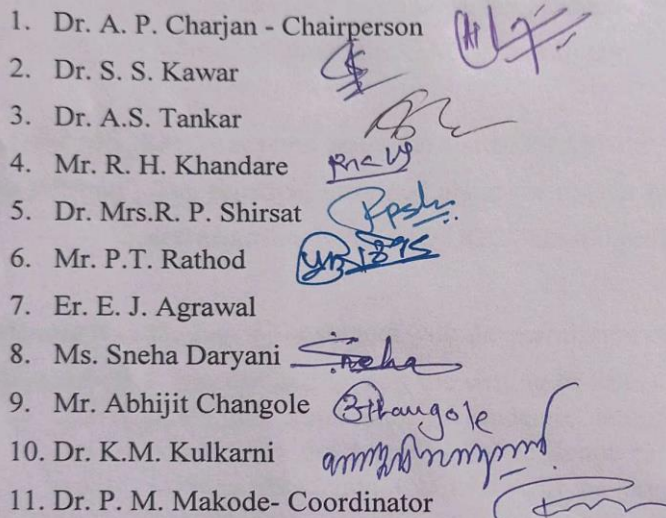 1. Dr. A. P. Charjan - Chairperson
2. Dr. S. S. Kawar
3. Dr. A.S. Tankar
4. Mr. R. H. Khandare
5. Dr. Mrs.R. P. Shirsat
6. Mr. P.T. Rathod
7. Er. E. J. Agrawal
8. Ms. Sneha Daryani Sneha
9. Mr. Abhijit Changole
10. Dr. K.M. Kulkarni
11. Dr. P. M. Makode- Coordinator